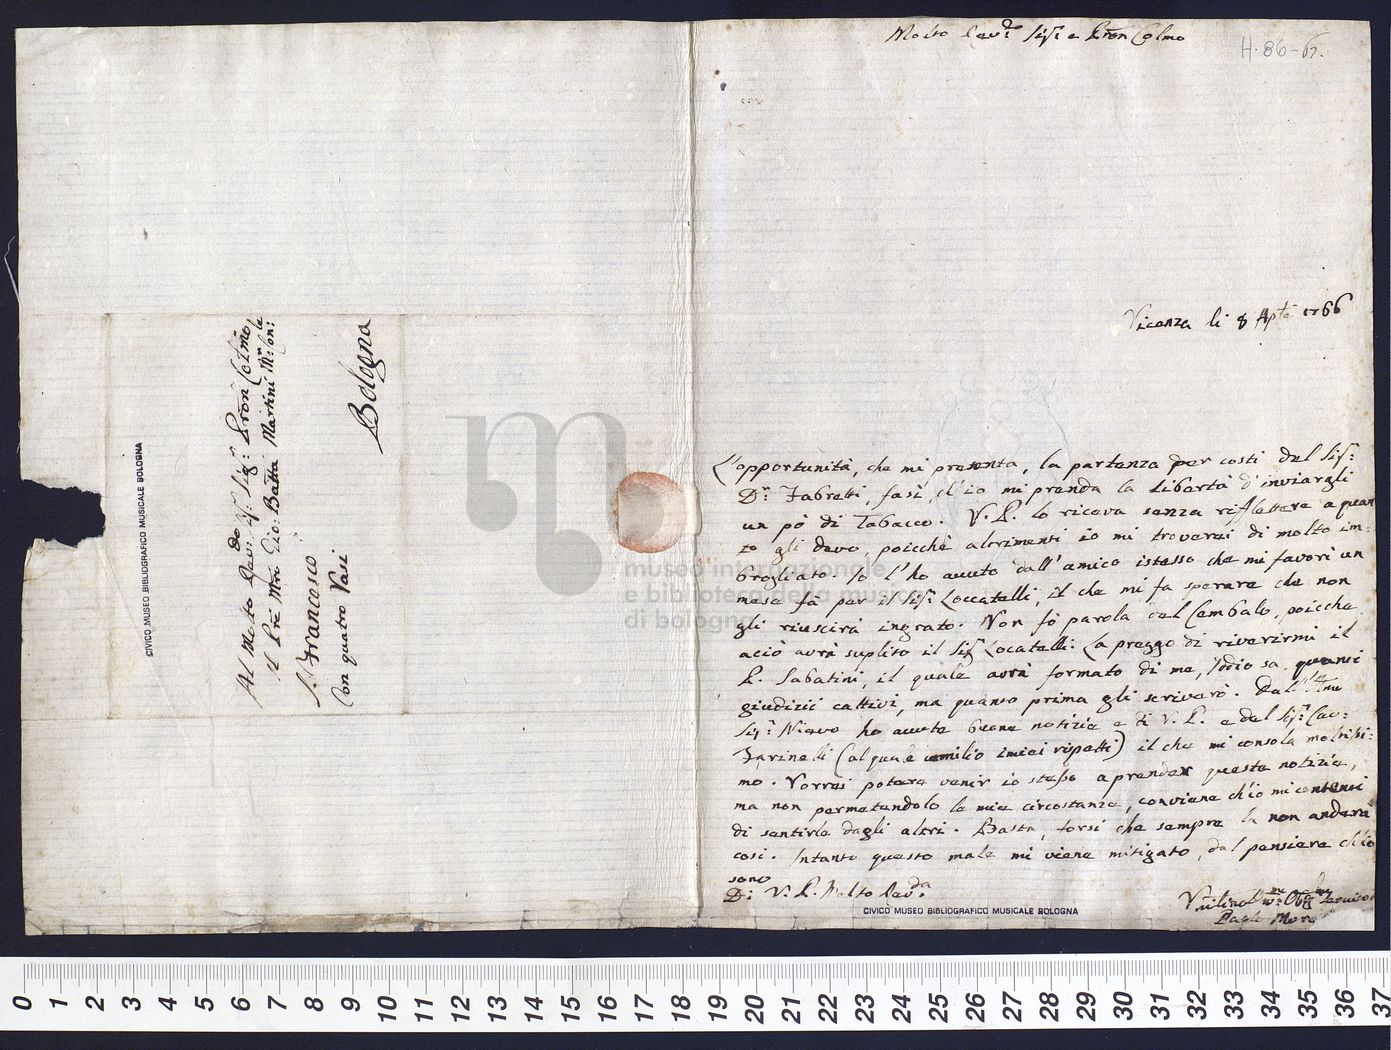 Molto Rev.do Sig.r e P.ron Col.mo
H. 86-67.
Vicenza li 8 Ap 1766
L'opportunità, che mi presenta, la partenza per costi del Sig.r
D.r Fabretti, fasi, ch'io mi prenda la libertà d'inviargli
un pò di Tabacco. V. P. lo riceva senza riflettere a quan
to gli devo, poicchè altrimenti io mi troverei di molto im-
brogliato. Io l'ho avuto dall'amico istesso che mi favorì un
mese fà per il Sig.r Loccatelli, il che mi fa sperare che non
gli riuscirà ingrato. Non fò parola del Cembalo, poicche
acciò avrà suplito il Sig.r Locatelli: La preggo di riverirmi il
P. Sabatini, il quale avrà formato di me, Iddio sa, quanti
giudizii cattivi, ma quanto prima gli scriverò. Dall'Ill.mo
Sig.r Nievo ho avute buone notizie e di V. P. e del Sig.r Cav:
Farinelli (al quale umilio i miei rispetti) il che mi consola moltissi-
mo. Vorrei potere venir io stesso a prender questa notizia,
ma non permetendolo le mie circostanze, conviene ch'io mi contenti
di sentirle dagli altri. Basta, forsi che sempre la non anderà
così. Intanto questo male mi viene mitigato, dal pensiere ch'io
sono
Di V. P. Molto Rev.da
CIVICO MUSEO BIBLIOGRAFICO MUSICALE BOLOGNA
Paolo
Al Molto Rev: do Sig: P.ron Col.mo
il Pre Mri Gio: Batta Martini M.r Con: le
S. Francesco
Con quatro Vasi
Bologna
CIVICO MUSEO BIBLIOGRAFICO MUSICALE BOLOGNA
museo internazionale
e biblioteca della musica
di bologna
0 1 2 3 4 5 6 7 8 9 10 11 12 13 14 15 16 17 18 19 20 21 22 23 24 25 26 27 28 29 30 31 32 33 34 35 36 37